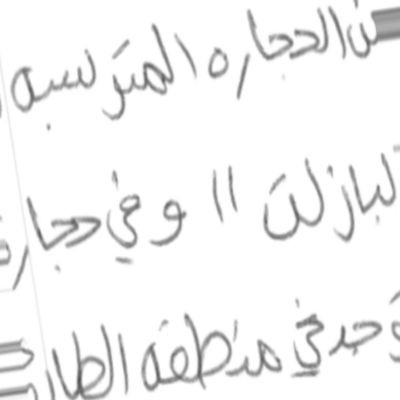 من الحجاره المترسبه
لبازلت " وفي حجارة
وجد في منطقة الطا